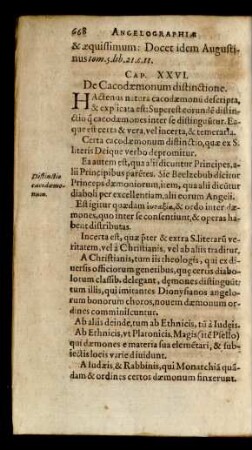 668 ANGELOGRAPHIÆ
& æquissimum: Docet idem Augusti-
nus tom. 5. lib. 21. c. 11.
CAP. XXVI.
De Cacodæmonum distinctione.
HActenus natura cacodæmonū descripta,
& explicata est: Superest eorundē distin-
ctio q̃ cacodæmones inter se distinguūtur. Ea-
que est certa & vera, vel incerta, & temeraria.
Certa cacodæmonum distinctio, quæ ex S.
literis Deique verbo depromitur.
Ea autem est, qua alii dicuntur Principes, a-
lii Principibus parētes. Sic Beelzebub dicitur
Princeps dæmoniorum, item, qua alii dicūtur
diaboli per excellentiam, alii eorum Angeli.
Distinctio
cacodæmo-
num.
Est igitur quædam & ordo inter dæ-
mones, quo inter se consentiunt, & operas ha-
bent distributas.
Incerta est, quæ p̃ter & extra S. literarū ve-
ritatem, vel à Christianis, vel ab aliis traditur.
A Christianis, tum iis theologis, qui ex di-
versis officiorum generibus, quę certis diabo-
lorum classib. delegant, dęmones distinguūt:
tum illis, qui imitantes Dionysianos angelo-
rum bonorum choros, novem dæmonum or-
dines comminiscuntur.
Ab aliis deinde, tum ab Ethnicis, tū à Iudęis.
Ab Ethnicis, ut Platonicis, Magis (itē Psello)
qui dæmones e materia sua elemētari, & sub-
iectis locis variè dividunt.
A Iudæis, & Rabbinis, qui Monarchiā quā-
dam & ordines certos dæmonum finxerunt.